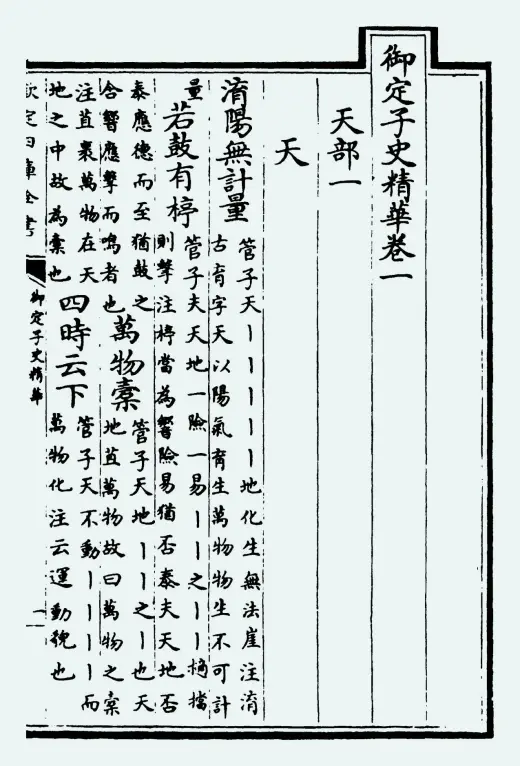 御定子史精華卷一
天部一
天
淯陽無計量
管子天丨丨丨丨丨地化生無法崖注淯
古育字天以陽氣育生萬物物生不可計
量
若鼓有桴
管子夫天地一險一易丨丨之丨丨摘擋
則擊注桴當為響險易猶否泰夫天地否
泰應德而至猶鼓之
含響應擊而鳴者也
萬物橐
管子天地丨丨之丨也天
地苴萬物故曰萬物之橐
注苴裹萬物在天
地之中故為橐也
四時云下
管子天不動丨丨丨丨而
萬物化注云運動貌也
欽定四庫全書
御定子史精華
一